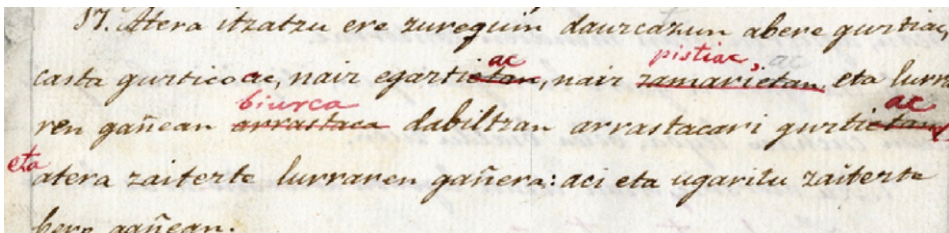 17. Atera itzatzu ere zurequin daurcazun abere gurtiac,
ac pistiac, ac
casta gurticoac, nair egartietan, nair zamarietan, eta lurra-
biurca ac
ren gañean arrastaca dabiltzan arrastacari gurtietan,
eta atera zaiterte lurraren gañera: aci eta ugaritu zaiterte
bere gañean.